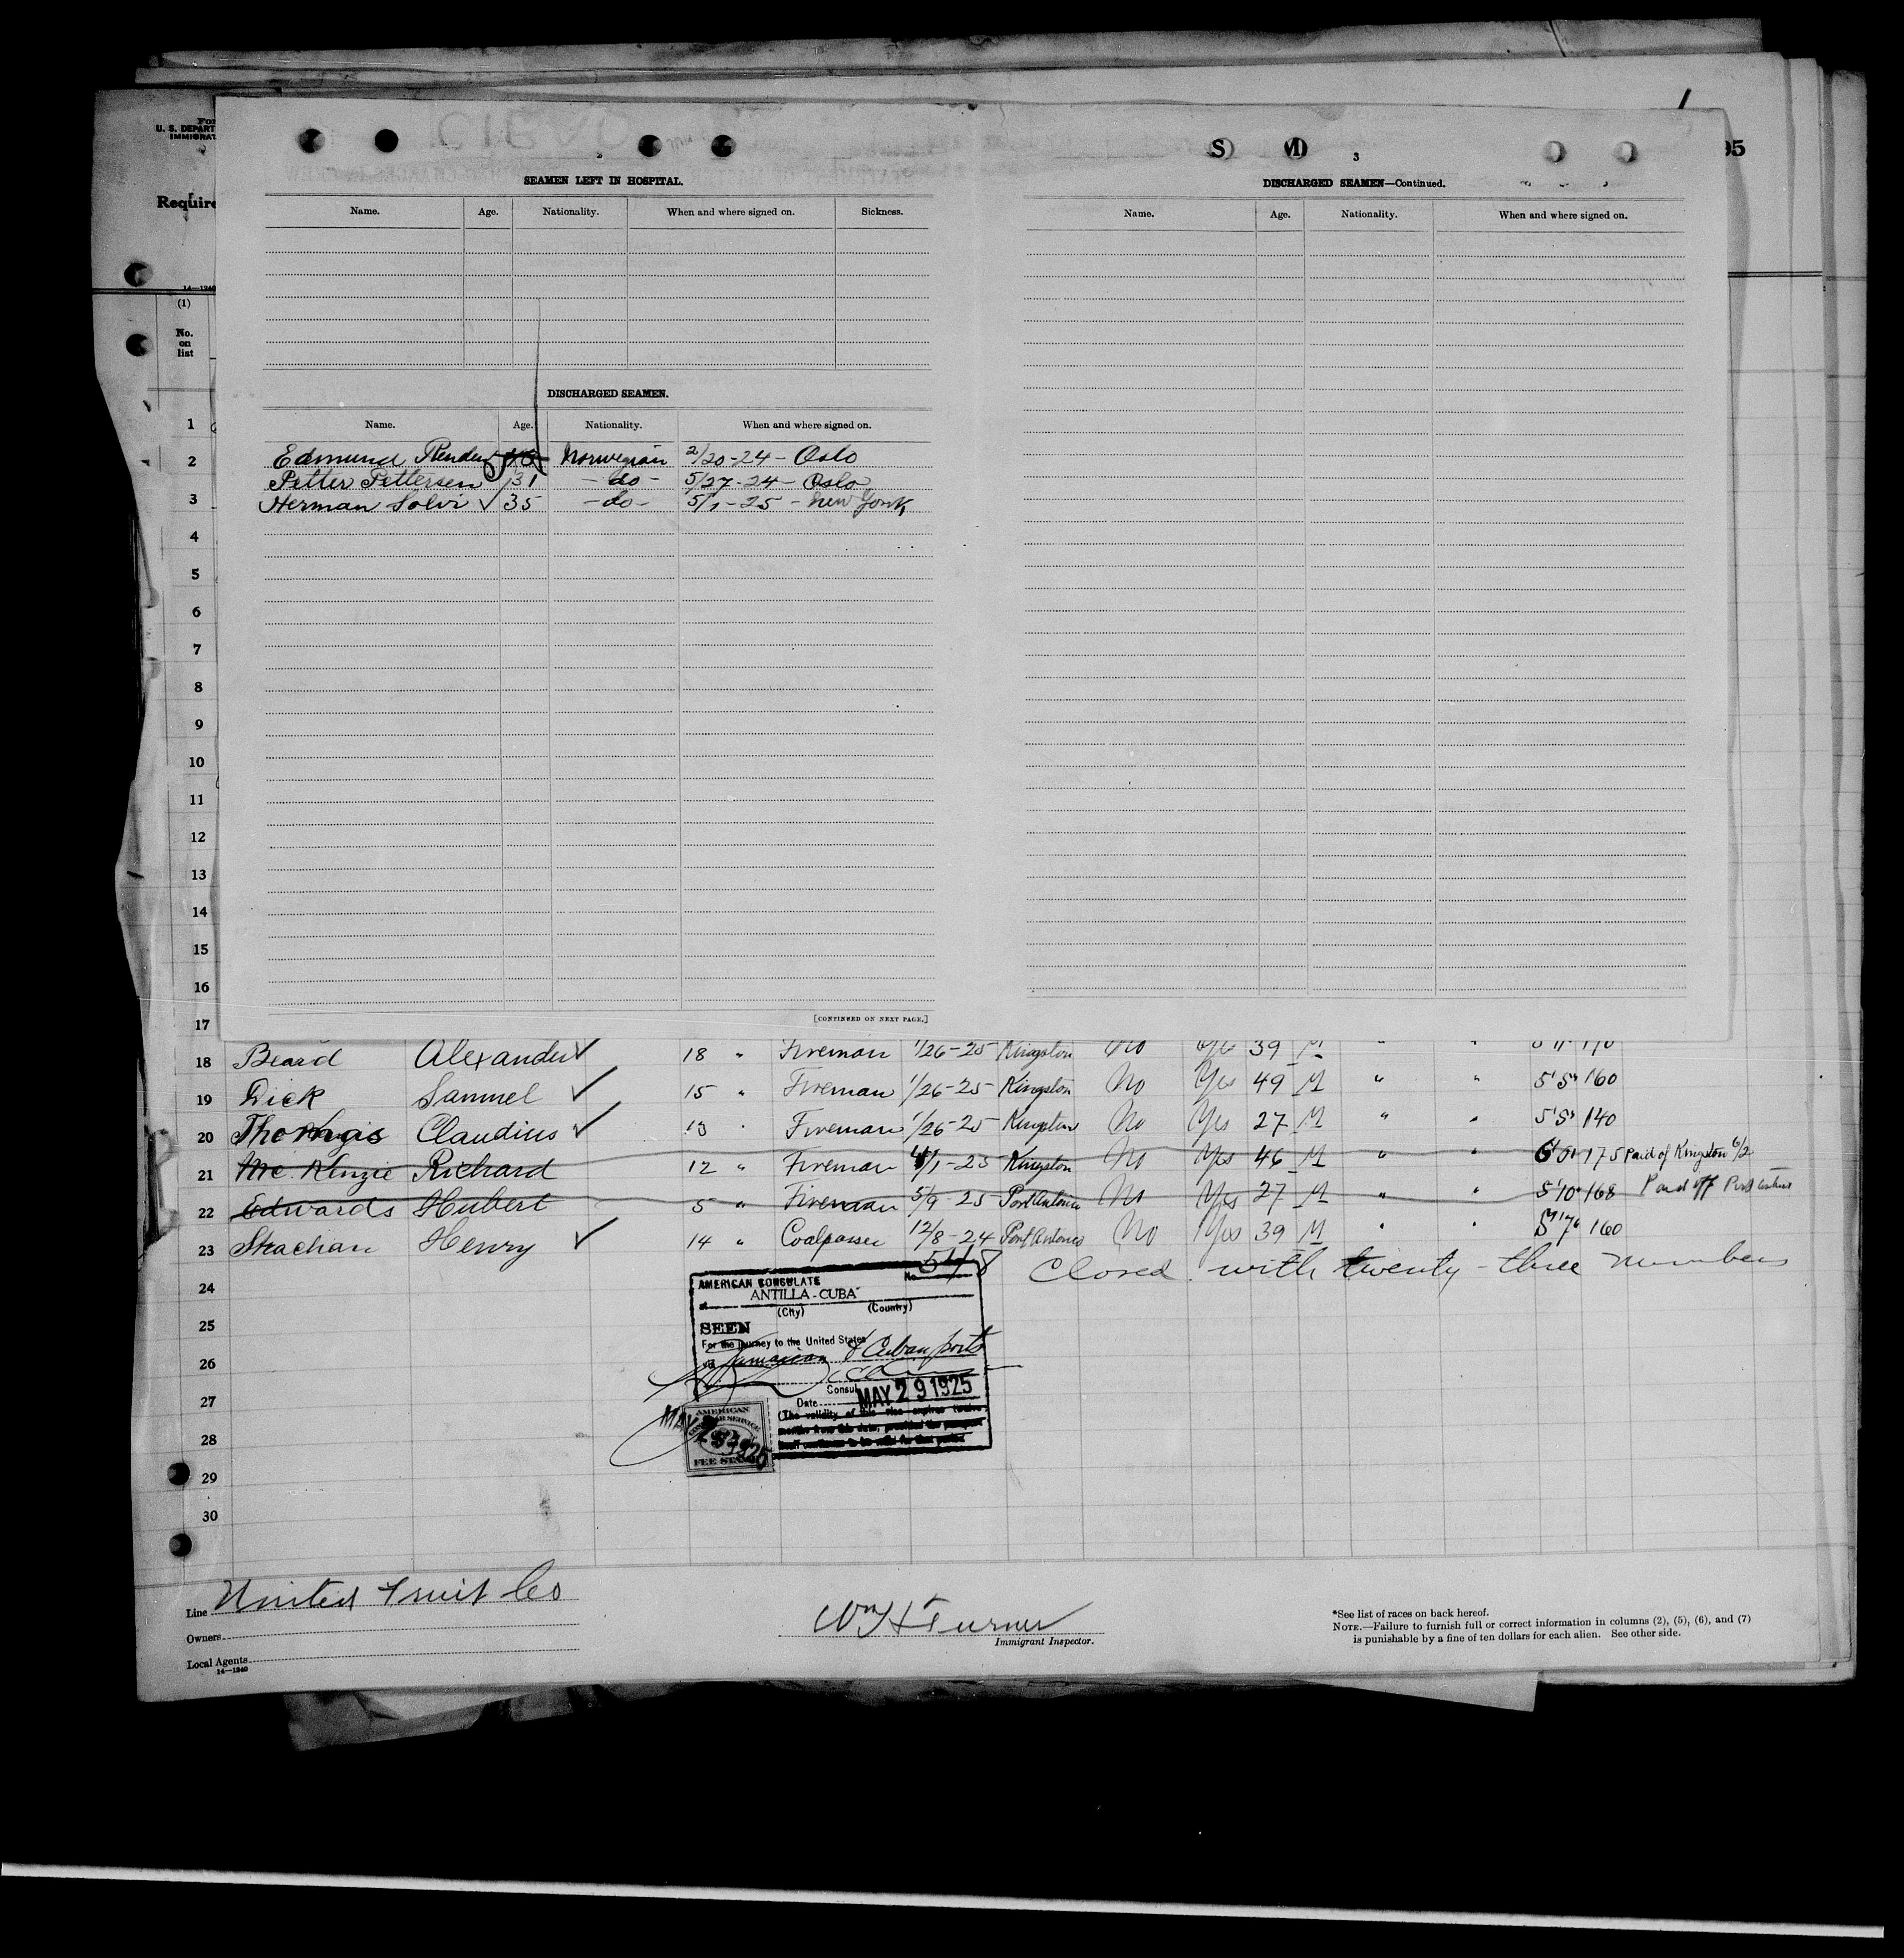 1
For
U. S. DEPART
IMMIGRAT
Require
14—1240
(1)
No.
on
list
S M
3
95
SEAMEN LEFT IN HOSPITAL.
Name. Age. Nationality. When and where signed on. Sickness.
DISCHARGED SEAMEN.
Name. Age. Nationality. When and where signed on.
Edmund Norwegian 2/20-24 - Oslo
Petter Pettersen 31 - do - 5/27-24 - Oslo
Herman Solvi ✓ 35 - do - 5/1-25 - New York
[CONTINUED ON NEXT PAGE.]
DISCHARGED SEAMEN—Continued.
Name. Age. Nationality. When and where signed on.
1
2
3
4
5
6
7
8
9
10
11
12
13
14
15
16
17
18 Beard Alexander ✓ 18 " Fireman 1/26-25 Kingston No Yes 39 M " "
19 Dick Samuel ✓ 15 " Fireman 1/26-25 Kingston No Yes 49 M " " 5'5" 160
20 Thomas Claudius ✓ 13 " Fireman 1/26-25 Kingston No Yes 27 M " " 5'5" 140
21 Mc Kenzie Richard 12 " Fireman 4/1-25 Kingston No Yes 46 M " " 6'0" 175 Paid of Kingston 6/2
22 Edwards Hubert 5 " Fireman 5/9-25 Port Antonio No Yes 27 M " " 5'10" 168 Paid off Port Antonio
23 Strachan Henry ✓ 14 " Coalpasser 12/8-24 Port Antonio No Yes 39 M " " 5'7" 160
24 Closed with twenty-three members
25
26
27
28
29
30
AMERICAN CONSULATE No. 548
at ANTILLA - CUBA
(City) (Country)
SEEN
For the journey to the United States
via Jamaican & Cuban ports
Consul
Date MAY 29 1925
(The validity of this visa expires twelve
months from this date, provided the passport
itself continues to be valid for that period.
AMERICAN
CONSULAR SERVICE
FEE STAMP
MAY 29 1925
Line United Fruit Co
Owners
Local Agents
14—1240
Wm H Turner
Immigrant Inspector.
*See list of races on back hereof.
NOTE.—Failure to furnish full or correct information in columns (2), (5), (6), and (7)
is punishable by a fine of ten dollars for each alien. See other side.